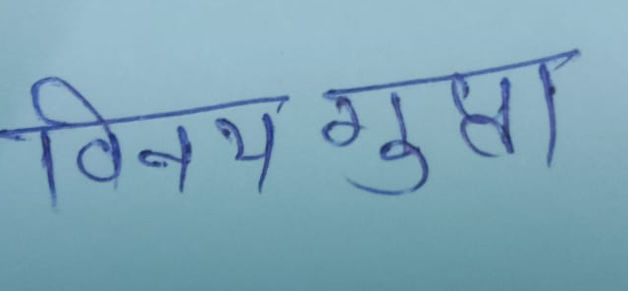 विनय गुप्ता